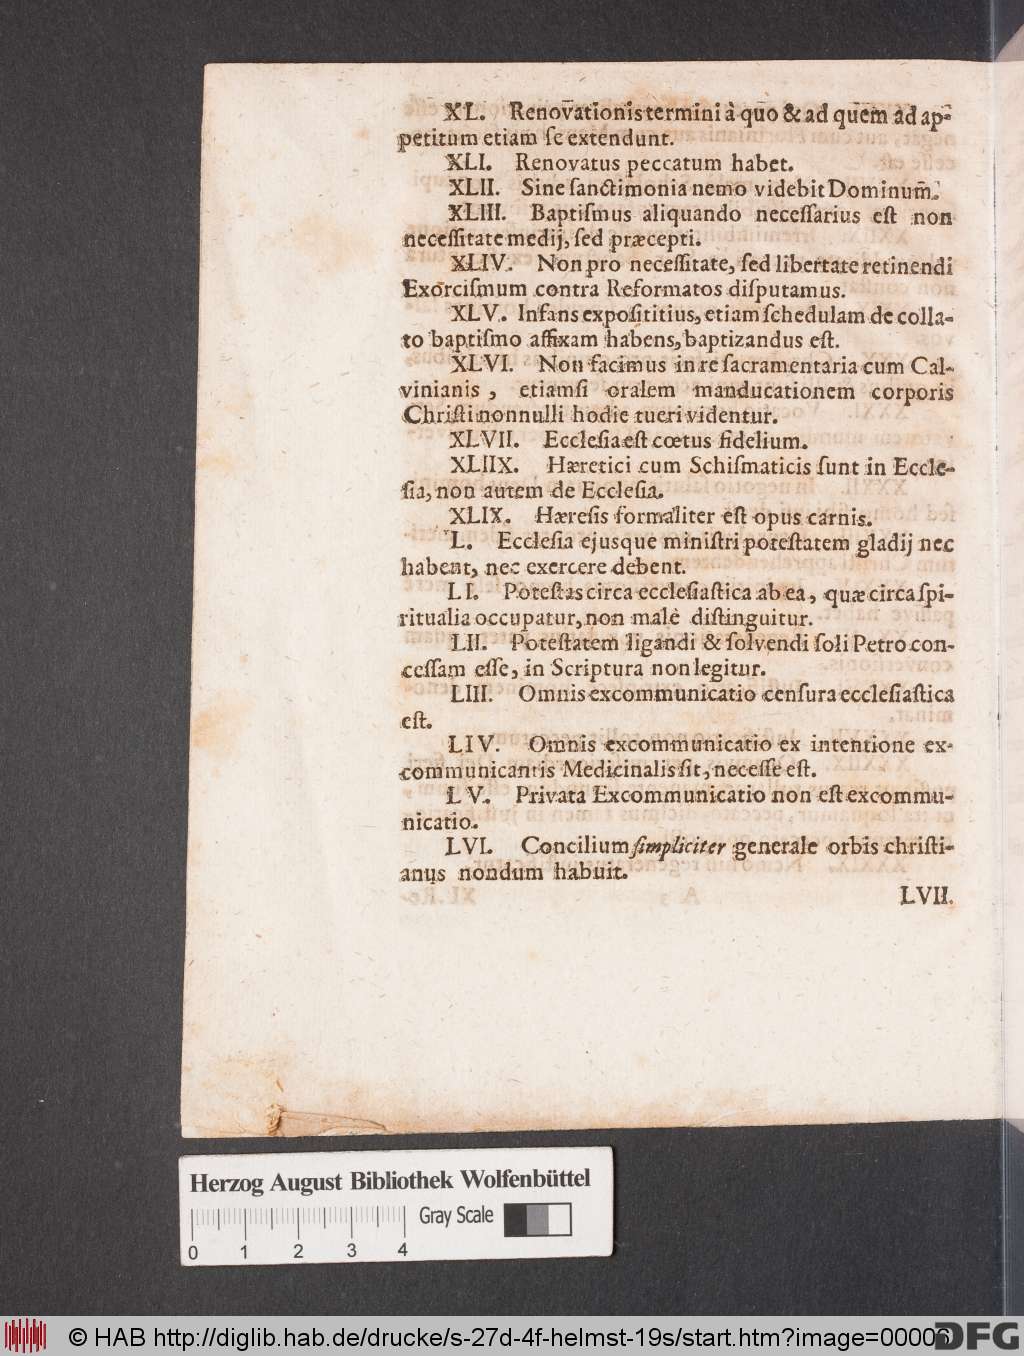 XL. Renovationis termini à quo & ad quem ad ap-
petitum etiam ſe extendunt.
XLI. Renovatus peccatum habet.
XLII. Sine ſanctimonia nemo videbit Dominum.
XLIII. Baptiſmus aliquando neceſſarius eſt non
neceſſitate medij, ſed præcepti.
XLIV. Non pro neceſſitate, ſed libertate retinendi
Exorciſmum contra Reformatos diſputamus.
XLV. Infans expoſititius, etiam ſchedulam de colla-
to baptiſmo affixam habens, baptizandus eſt.
XLVI. Non facimus in re ſacramentaria cum Cal-
vinianis, etiamſi oralem manducationem corporis
Chriſti nonnulli hodie tueri videntur.
XLVII. Eccleſia eſt cœtus fidelium.
XLIIX. Hæretici cum Schiſmaticis ſunt in Eccle-
ſia, non autem de Eccleſia.
XLIX. Hæreſis formaliter eſt opus carnis.
L. Eccleſia ejusque miniſtri poteſtatem gladij nec
habent, nec exercere debent.
LI. Poteſtas circa eccleſiaſtica ab ea, quæ circa ſpi-
ritualia occupatur, non malè diſtinguitur.
LII. Poteſtatem ligandi & ſolvendi ſoli Petro con-
ceſſam eſſe, in Scriptura non legitur.
LIII. Omnis excommunicatio cenſura eccleſiaſtica
eſt.
LIV. Omnis excommunicatio ex intentione ex-
communicantis Medicinalis ſit, neceſſe eſt.
LV. Privata Excommunicatio non eſt excommu-
nicatio.
LVI. Concilium ſimpliciter generale orbis chriſti-
anus nondum habuit.
LVII.
Herzog August Bibliothek Wolfenbüttel
Gray Scale
0 1 2 3 4
© HAB http://diglib.hab.de/drucke/s-27d-4f-helmst-19s/start.htm?image=00006
DFG